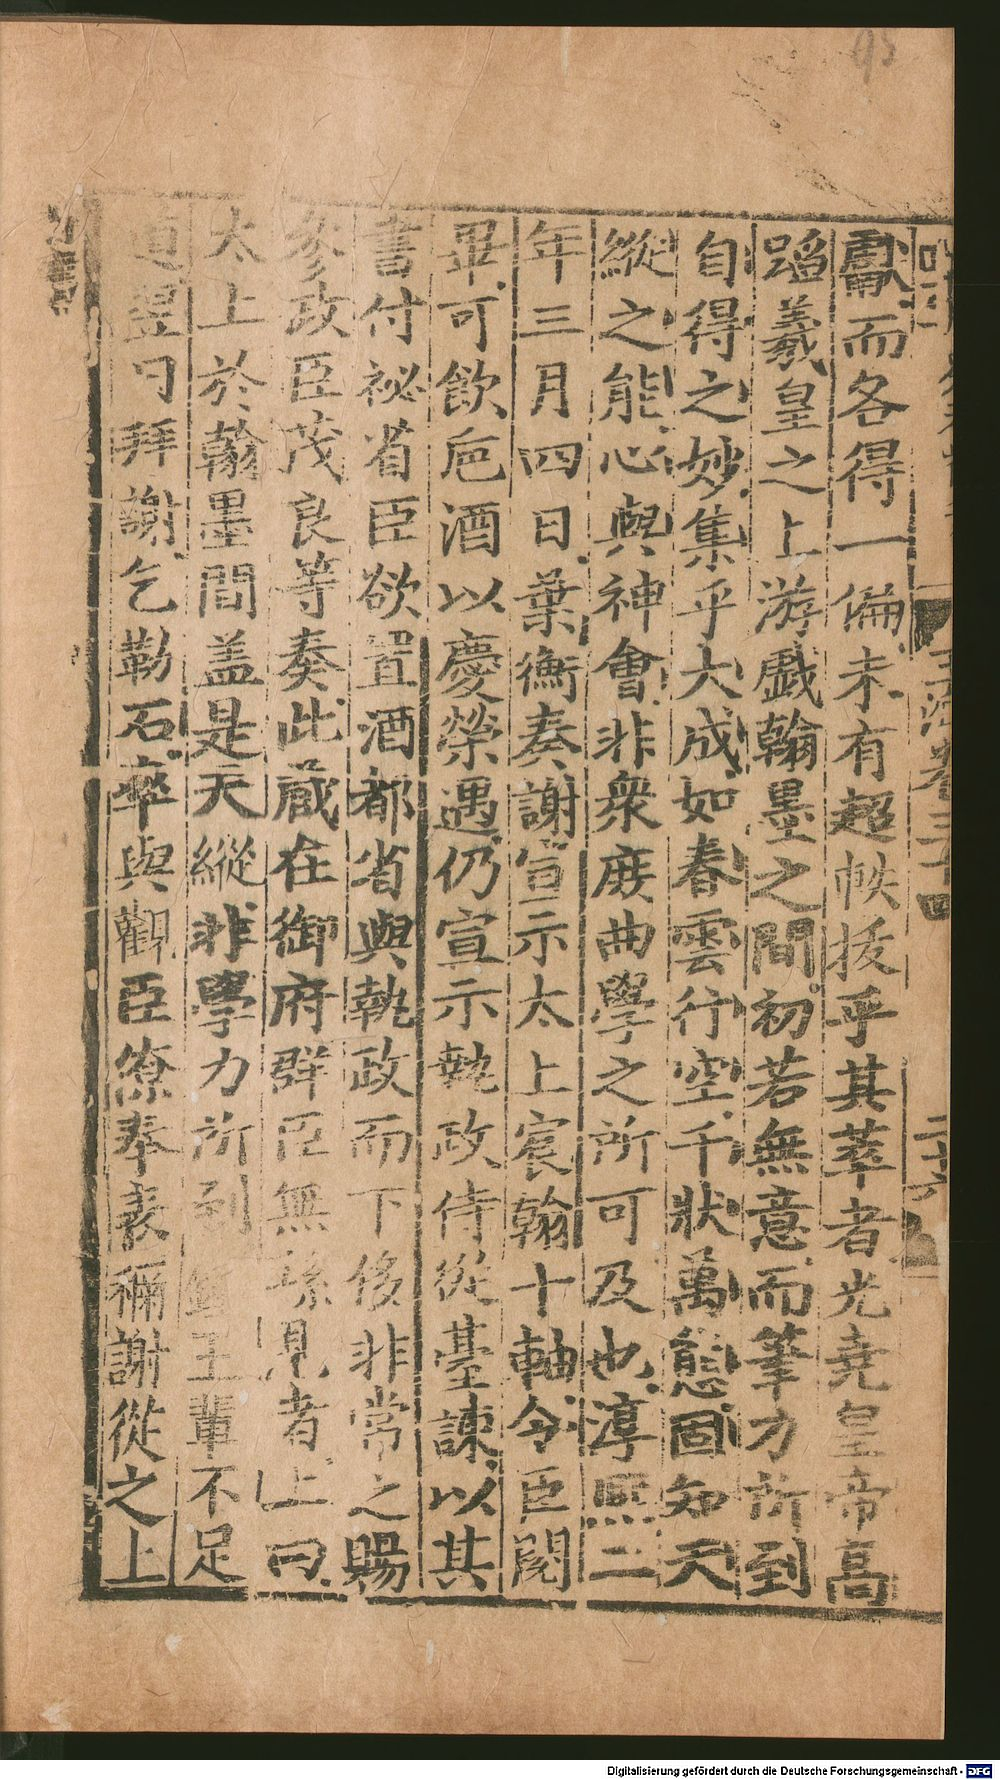 95
玉海卷三十四 二十六
鬳而各得一偏未有超帙拔乎其萃者光堯皇帝高
蹈羲皇之上游戲翰墨之間初若無意而筆力所到
自得之妙集乎大成如春雲行空千狀萬態固知天
縱之能心與神會非衆庶曲學之所可及也淳熙二
年三月四日葉衡奏謝宣示太上宸翰十軸令臣閱
畢可飲巵酒以慶榮遇仍宣示執政侍從臺諫以其
書付祕省臣欲置酒都省與執政而下侈非常之賜
參政臣茂良等奏此藏在御府群臣無緣見者上曰
太上於翰墨間盖是天縱非學力所到鍾王輩不足
道翌日拜謝乞勒石率與觀臣僚奉表稱謝從之上
Digitalisierung gefördert durch die Deutsche Forschungsgemeinschaft - DFG